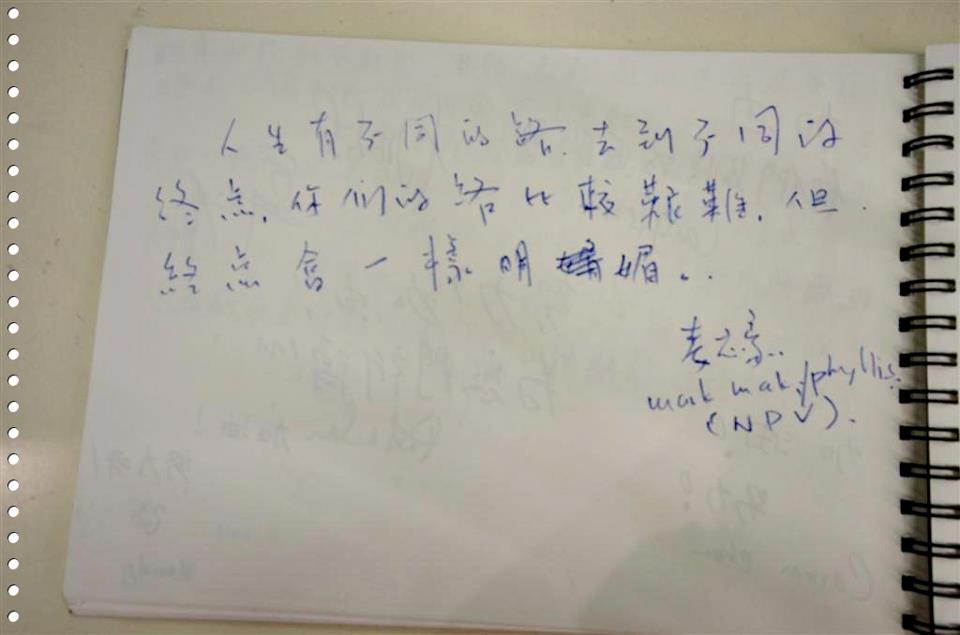 人生有不同的路.去到不同的
終点,你們的路比較艱難,但
終点會一樣明媚..
麦志豪..
mark mak/phyllis
(NPV).
加油!